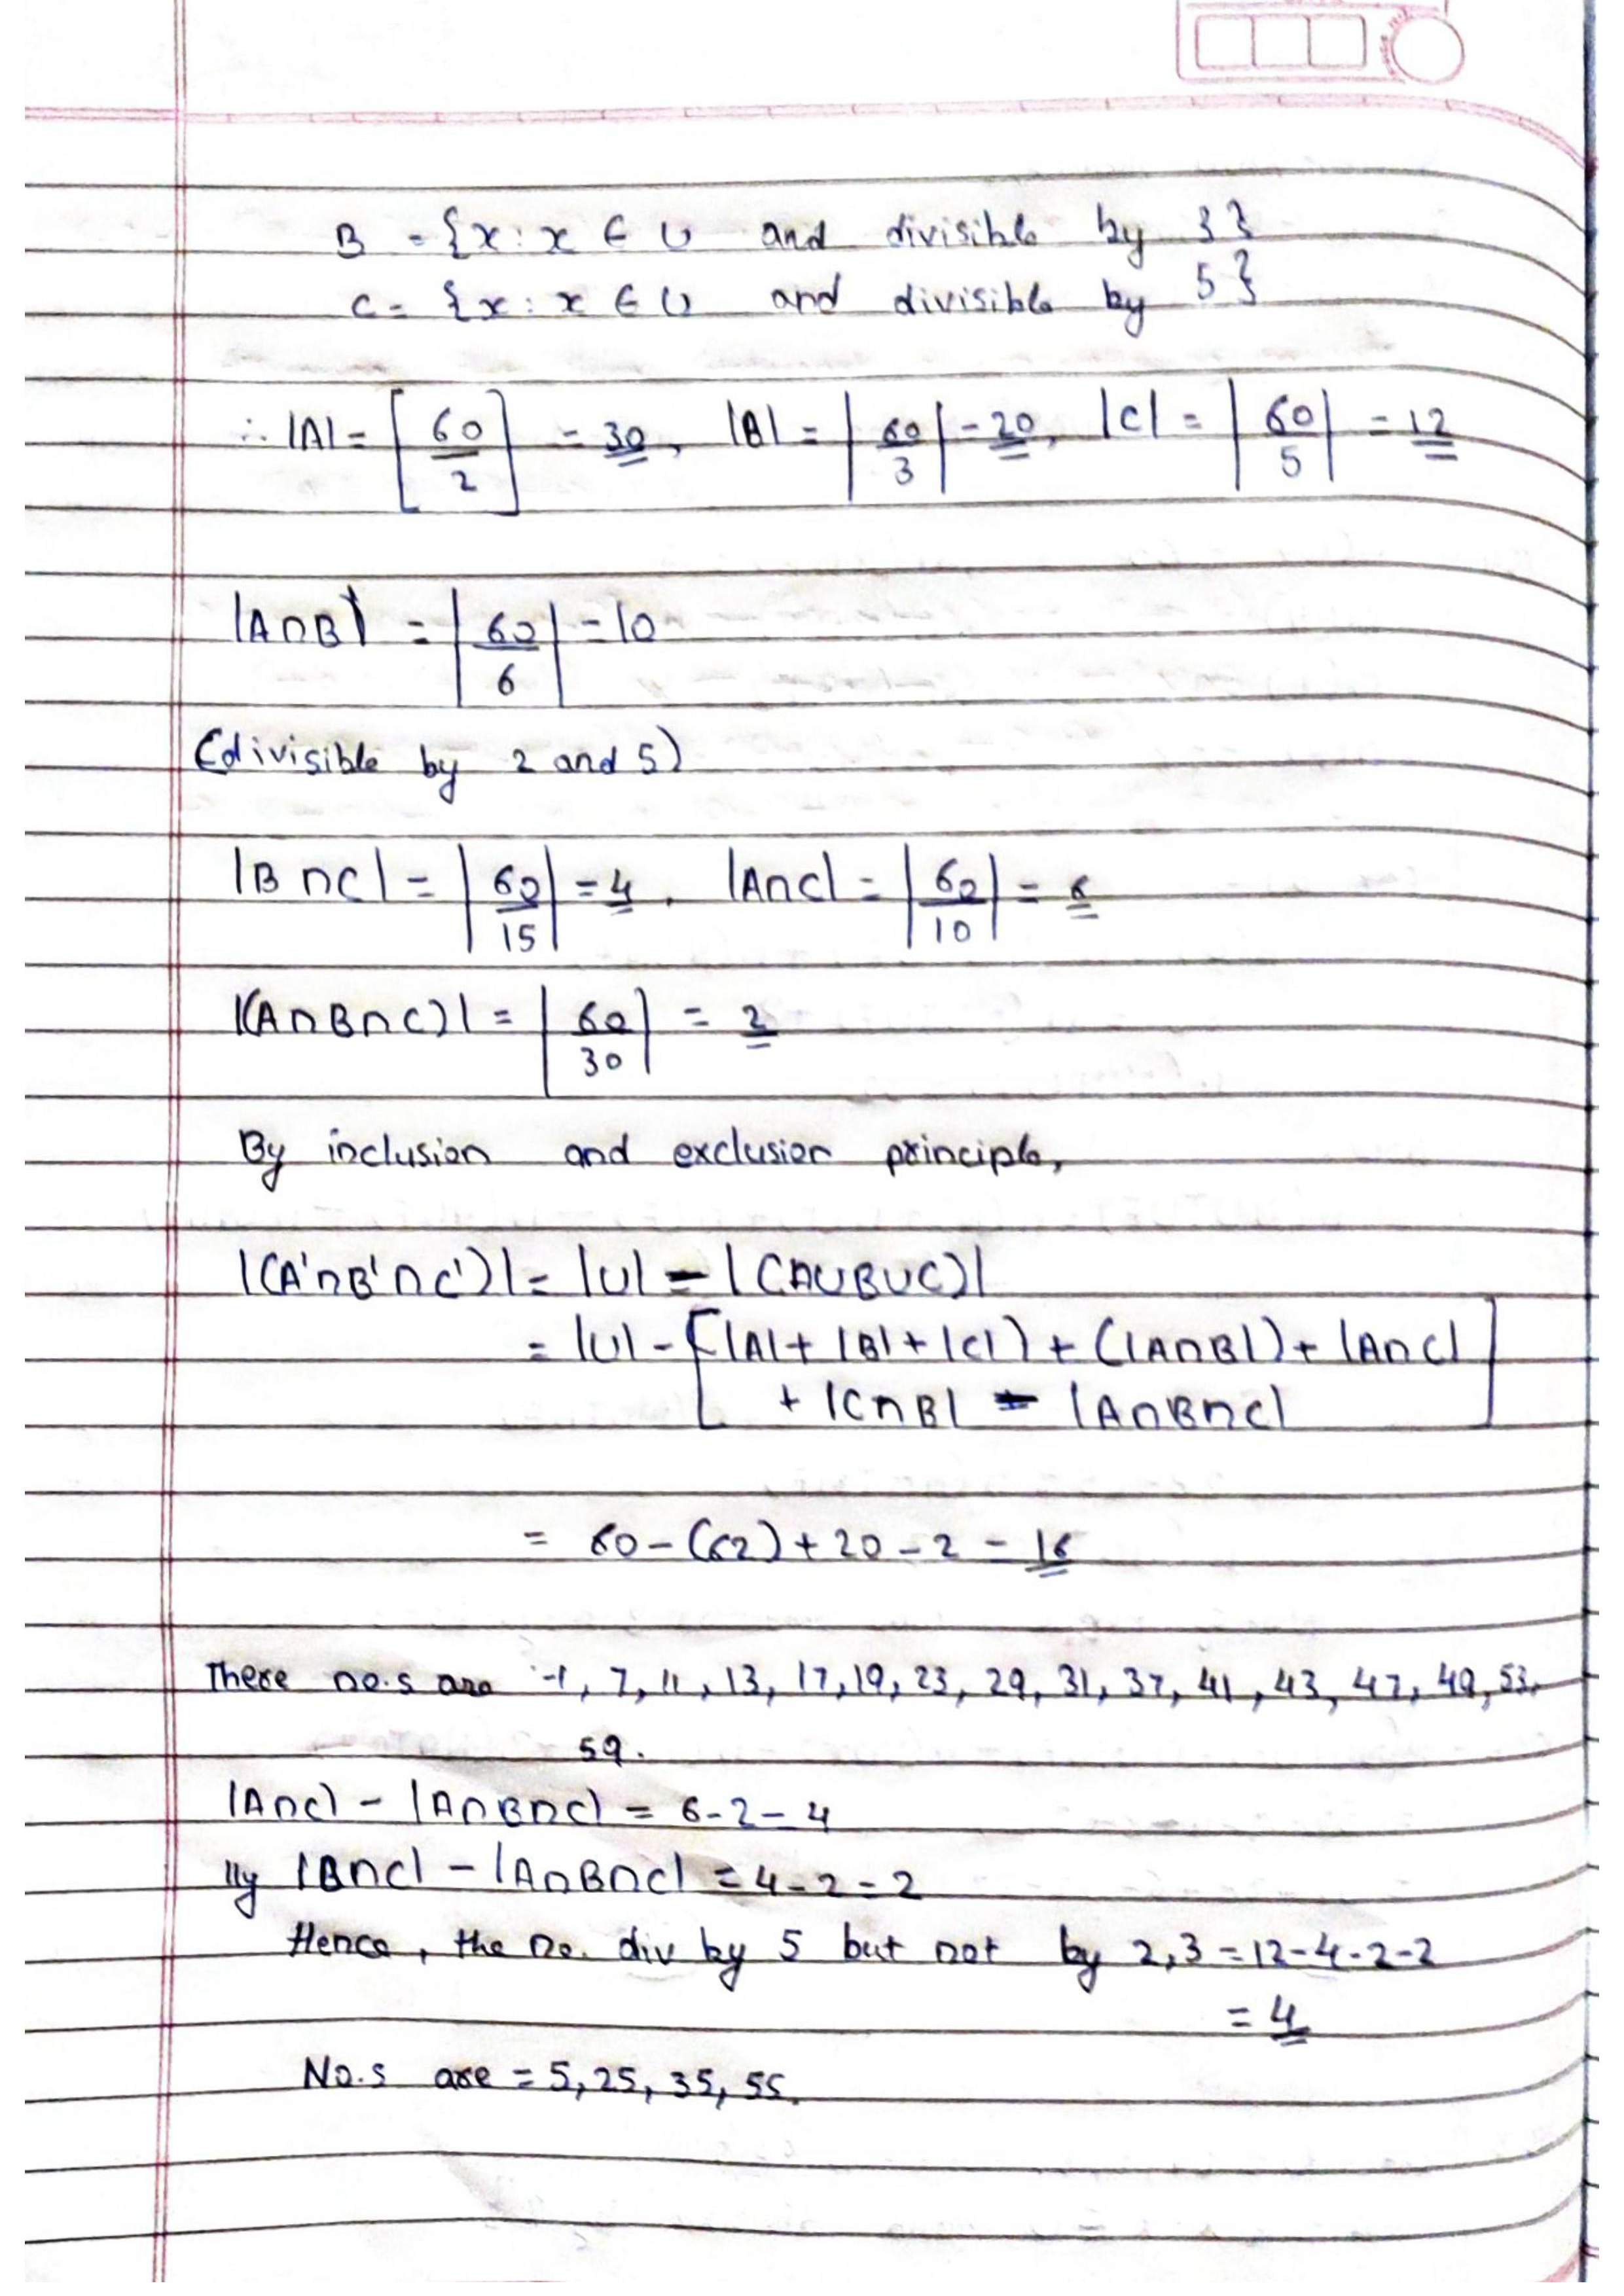 B = {x : x ∈ U and divisible by 3}
C = {x : x ∈ U and divisible by 5}
∴ |A| = [60/2] = 30, |B| = |60/3| = 20, |C| = |60/5| = 12
|A∩B| = |60/6| = 10
(divisible by 2 and 5)
|B∩C| = |60/15| = 4, |A∩C| = |60/10| = 6
|(A∩B∩C)| = |60/30| = 2
By inclusion and exclusion principle,
|(A'∩B'∩C')| = |U| - |(A∪B∪C)|
= |U| - [|A| + |B| + |C|) + (|A∩B|) + |A∩C|
+ |C∩B| - |A∩B∩C|]
= 60 - (62) + 20 - 2 = 16
These no.s are -1, 7, 11, 13, 17, 19, 23, 29, 31, 37, 41, 43, 47, 49, 53,
59.
|A∩C| - |A∩B∩C| = 6-2 = 4
lly |B∩C| - |A∩B∩C| = 4-2 = 2
Hence, the no. div by 5 but not by 2,3 = 12-4-2-2
= 4
No.s are = 5, 25, 35, 55.